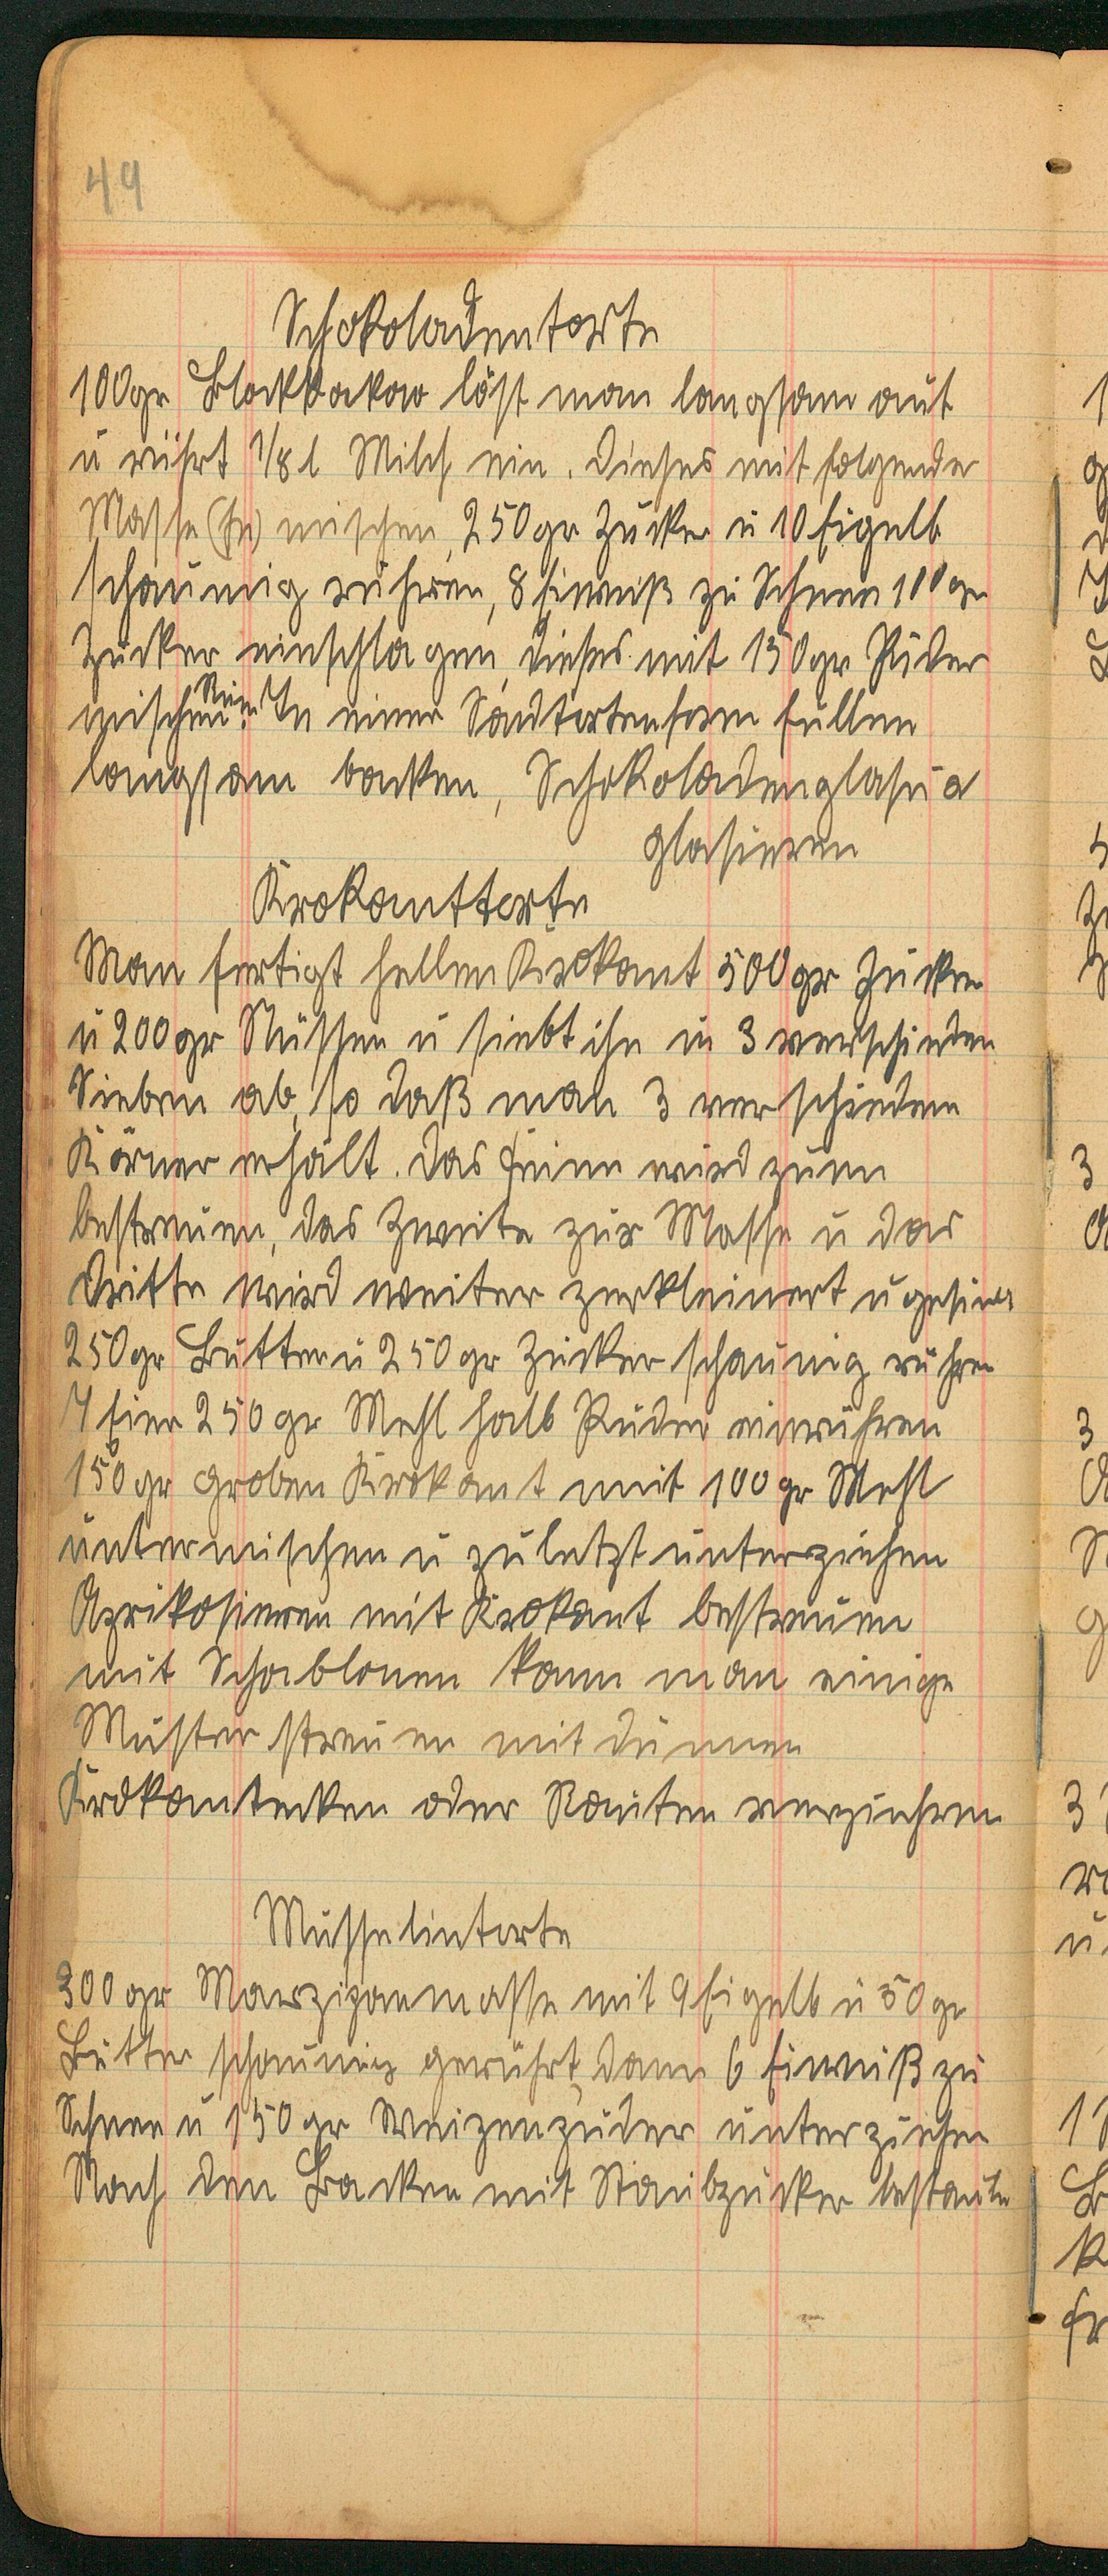 49
Schokoladentorte
100gr Blockkakao löst man langsam auf
u rührt 1/8 l Milch ein. Dieses mit folgender
Masse mischen, 250gr Zucker u 10 Eigelb
schaumig rühren, 8 Eiweiß zu Schnee 100gr
Zucker einschlagen, dieses mit 150gr Puder
mischen. In einer Sandtortenform füllen
langsam backen, Schokoladenglasur
glasieren
Krokanttorte
Man fertigt hellen Krokant 500gr Zucker
u 200gr Nüssen u siebt ihn in 3 verschieden
Sieben ab, so daß man 3 verschiedene
Körner erhält. Das feine wird zum
bestreuen, das Zweite zur Masse u das
Dritte wird weiter zerkleinert u gesiebt
250gr Butter u 250gr Zucker schaumig rühren
7 Eier 250gr Mehl halb Puder einrühren
150gr groben Krokant mit 100gr Mehl
untermischen u zuletzt unterziehen
Aprikosieren mit Krokant bestreuen
mit Schablonen kann man einige
Muster streuen mit dünnen
Krokantecken oder Rauten verziehren
Musselintorte
300gr Marzipanmasse mit 9 Eigelb u 50gr
Butter schaumig gerührt, dann 6 Eiweiß zu
Schnee u 150gr Weizenpuder unterziehen
Nach den Backen mit Staubzucker bestäuben